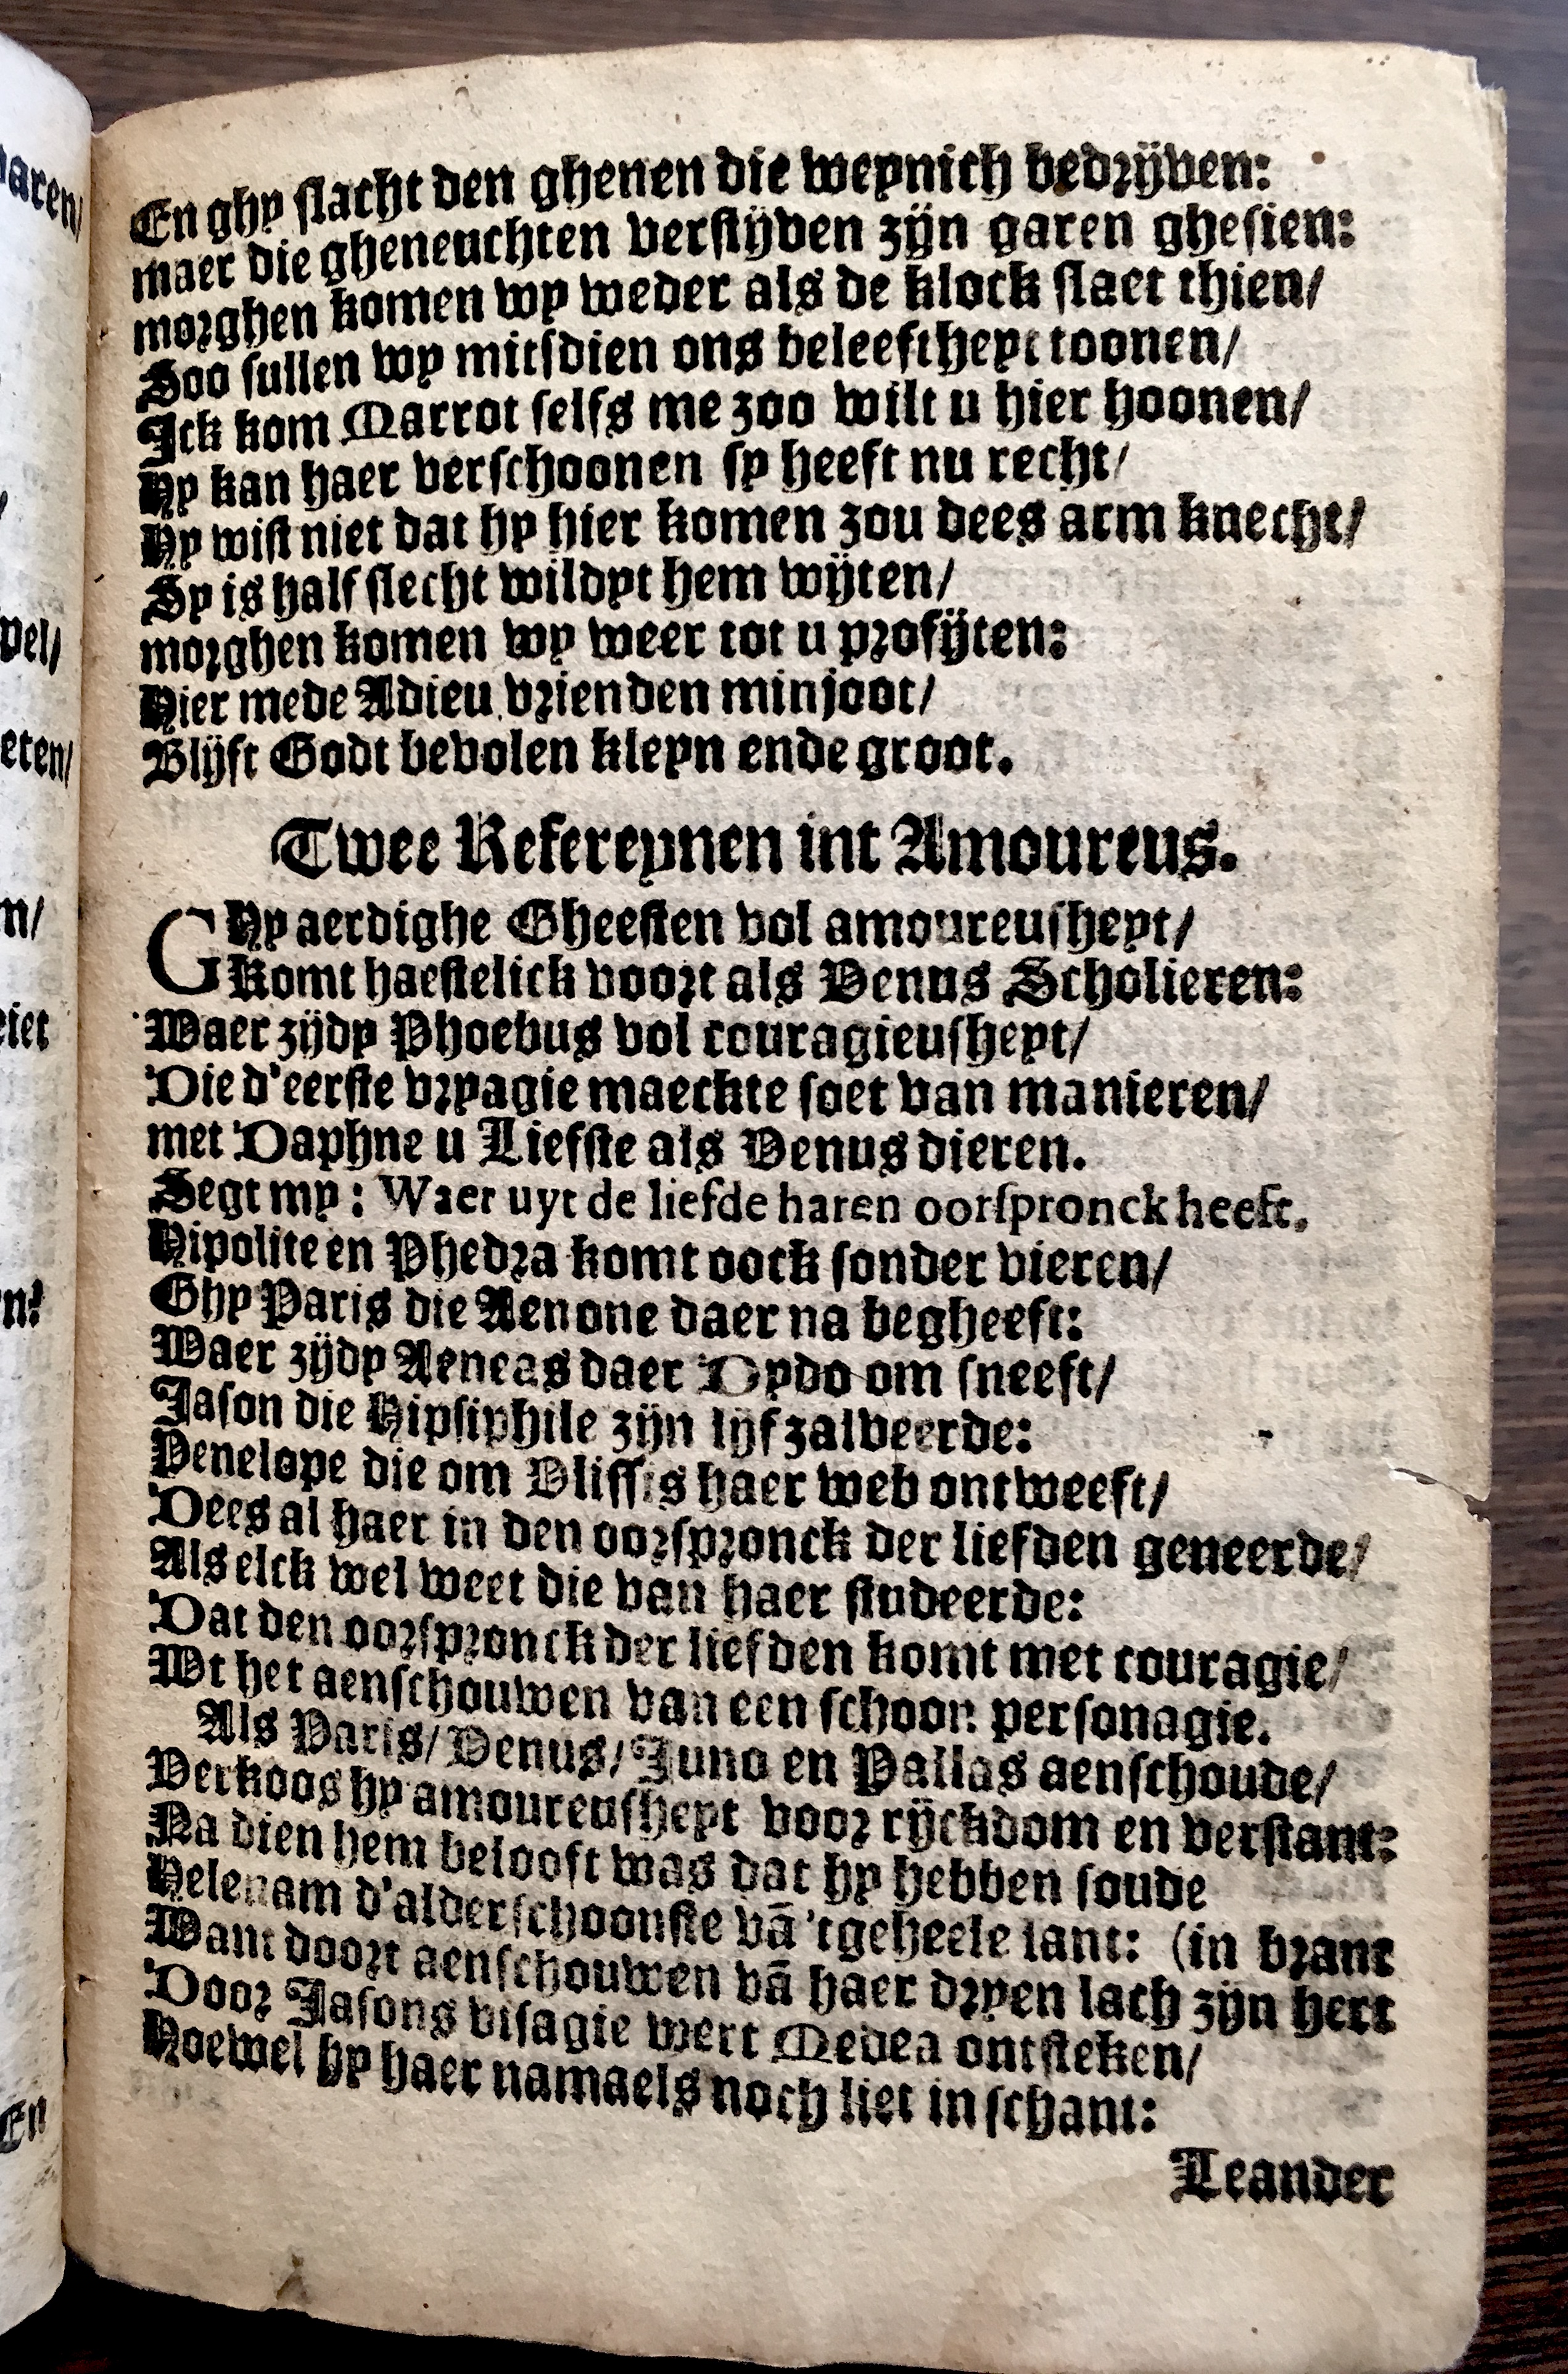 En ghy slacht den ghenen die weynich bedrijven:
maer die gheneuchten verstijven zijn garen ghesien:
morghen komen wy weder als de klock slaet thien/
Soo sullen wy mitsdien ons beleeftheyt toonen/
Ick kom Marrot selfs me zoo wilt u hier hoonen/
Hy kan haer verschoonen sy heeft nu recht/
Hy wist niet dat hy hier komen zou dees arm knecht/
Sy is half slecht wildyt hem wijten/
morghen komen wy weer tot u profijten:
Hier mede Adieu vrienden minjoot/
Blijft Godt bevolen kleyn ende groot.
Twee Refereynen int Amoureus.
GHy aerdighe Gheesten vol amoureusheyt/
Komt haestelick voort als Venus Scholieren:
Waer zijdy Phoebus vol couragieusheyt/
Die d'eerste vryagie maeckte soet van manieren/
met Daphne u Liefste als Venus dieren.
Segt my: Waer uyt de liefde haren oorspronck heeft.
Hipolite en Phedra komt oock sonder vieren/
Ghy Paris die Aenone daer na begheeft:
Waer zijdy Aeneas daer Dydo om sneeft/
Jason die Hipsiphile zijn lijf zalveerde:
Penelope die om Vlissis haer web ontweeft/
Dees al haer in den oorspronck der liefden geneerde/
Als elck wel weet die van haer studeerde:
Dat den oorspronck der liefden komt met couragie/
Wt het aenschouwen van een schoon personagie.
Als Paris/Venus/Juno en Pallas aenschoude/
Verkoos hy amoureusheyt voor rijckdom en verstant:
Na dien hem belooft was dat hy hebben soude
Helenam d'alderschoonste vã 'tgeheele lant: (in brant
Want doort aenschouwen vã haer dryen lach zijn hert
Door Jasons visagie wert Medea ontsteken/
Hoewel hy haer namaels noch liet in schant:
Leander